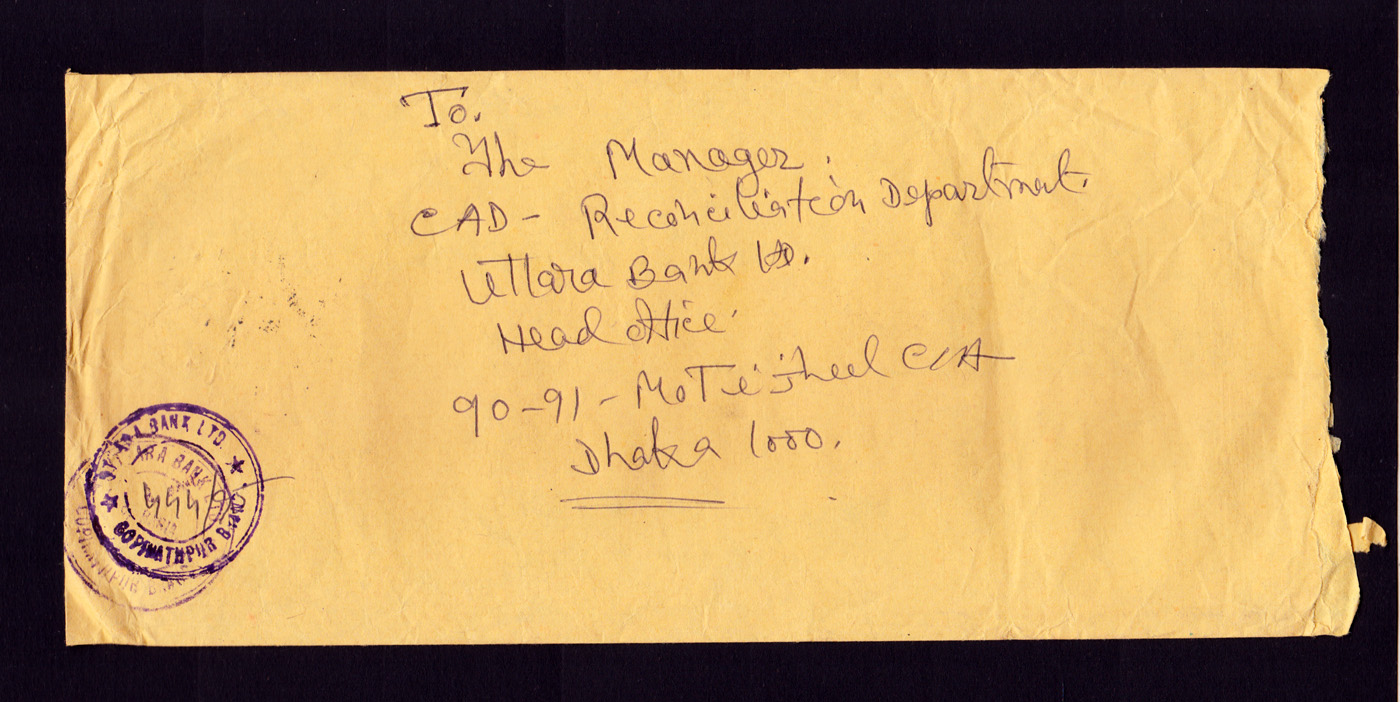 To.
The Manager.
CAD- Reconciliation Department.
Uttara Bank Ltd.
Head office
90-91- Motijheel C/A
Dhaka 1000.
UTTARA BANK LTD.
★ GOPINATHPUR BRANCH ★
ARA BANK
GOPINATHPUR BRA